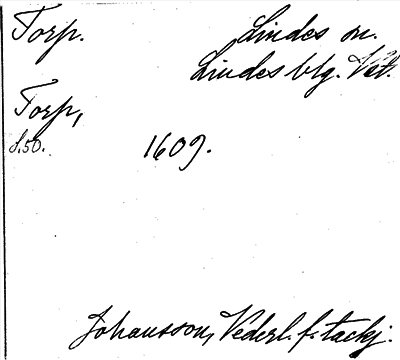 Torp.
Lindes sn.
Lindesblg. Vst.
Torp,
s. 50.
1609.
Johansson, Vederl. f. tackj.